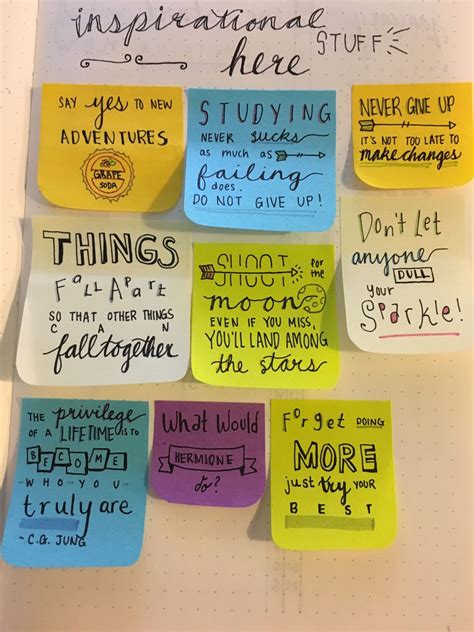 inspirational
STUFF
here
SAY yes TO NEW
ADVENTURES
GRAPE
SODA
STUDYING
NEVER sucks
as much as
failing
does.
DO NOT GIVE UP!
NEVER GIVE UP
IT'S NOT TOO LATE TO
make changes
THINGS
FALL APART
SO THAT OTHER THINGS
CAN
fall together
SHOOT for
the
moon
EVEN IF YOU MISS,
YOU'LL LAND AMONG
the stars
Don't let
anyone
DULL
your
Sparkle!
THE privilege
OF A LIFETIME IS TO
BECOME
WHO YOU
truly are
- C.G. JUNG
What Would
HERMIONE
do?
Forget DOING
MORE
just try YOUR
BEST